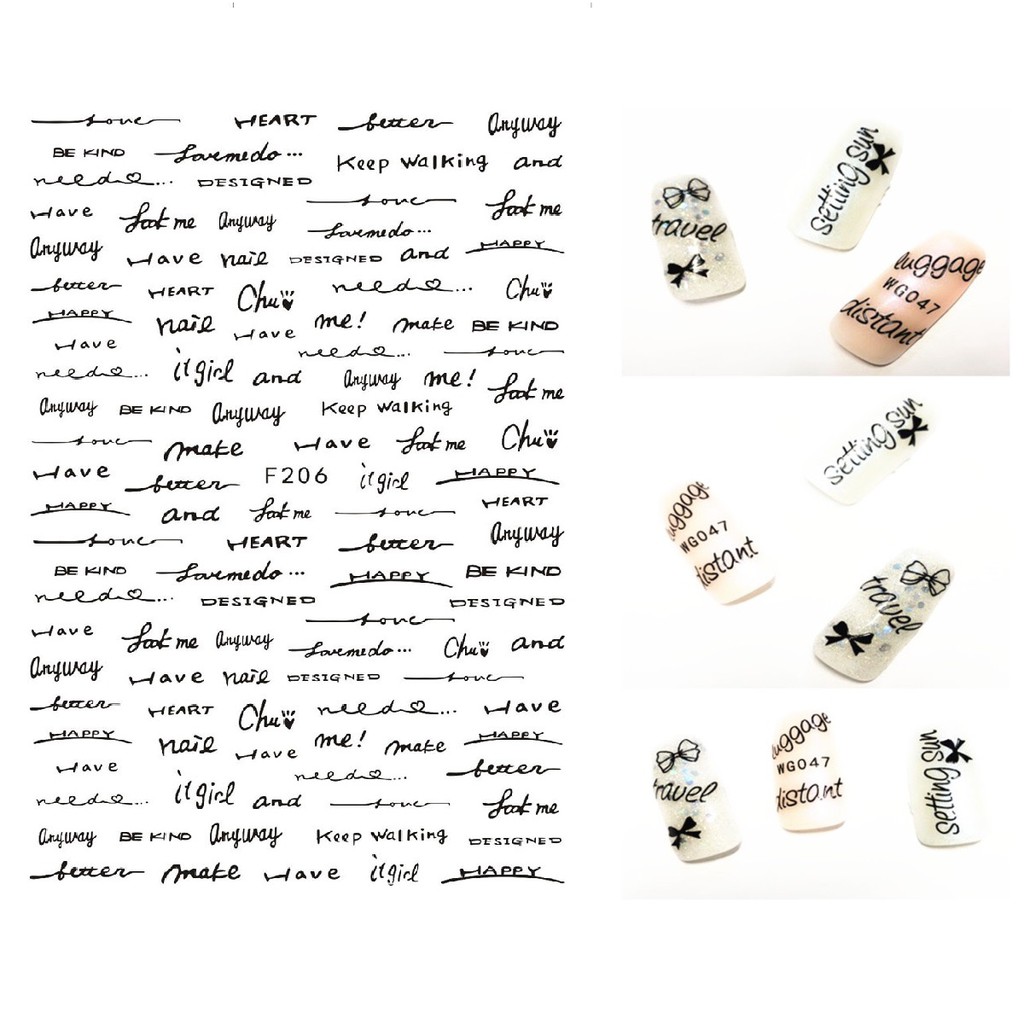 love HEART better Anyway
BE KIND Lovemedo... Keep walking and
need... DESIGNED
love
Have Look me Anyway Look me
Lovemedo...
Anyway Have nail DESIGNED and HAPPY
better HEART Chu need... Chu
HAPPY nail Have me! make BE KIND
Have need... love
need... it girl and Anyway me! Look me
Anyway BE KIND Anyway Keep walking
love make Have Look me Chu
Have better F206 it girl HAPPY
HAPPY and Look me love HEART
love HEART better Anyway
BE KIND Lovemedo... HAPPY BE KIND
need... DESIGNED DESIGNED
love
Have Look me Anyway Lovemedo... Chu and
Anyway Have nail DESIGNED love
better HEART Chu need... Have
HAPPY nail Have me! make HAPPY
Have need... better
need... it girl and love Look me
Anyway BE KIND Anyway Keep walking DESIGNED
better make Have it girl HAPPY
travel
setting sun
luggage
WG047
distant
setting sun
luggage
WG047
distant
travel
travel
luggage
WG047
distant
setting sun